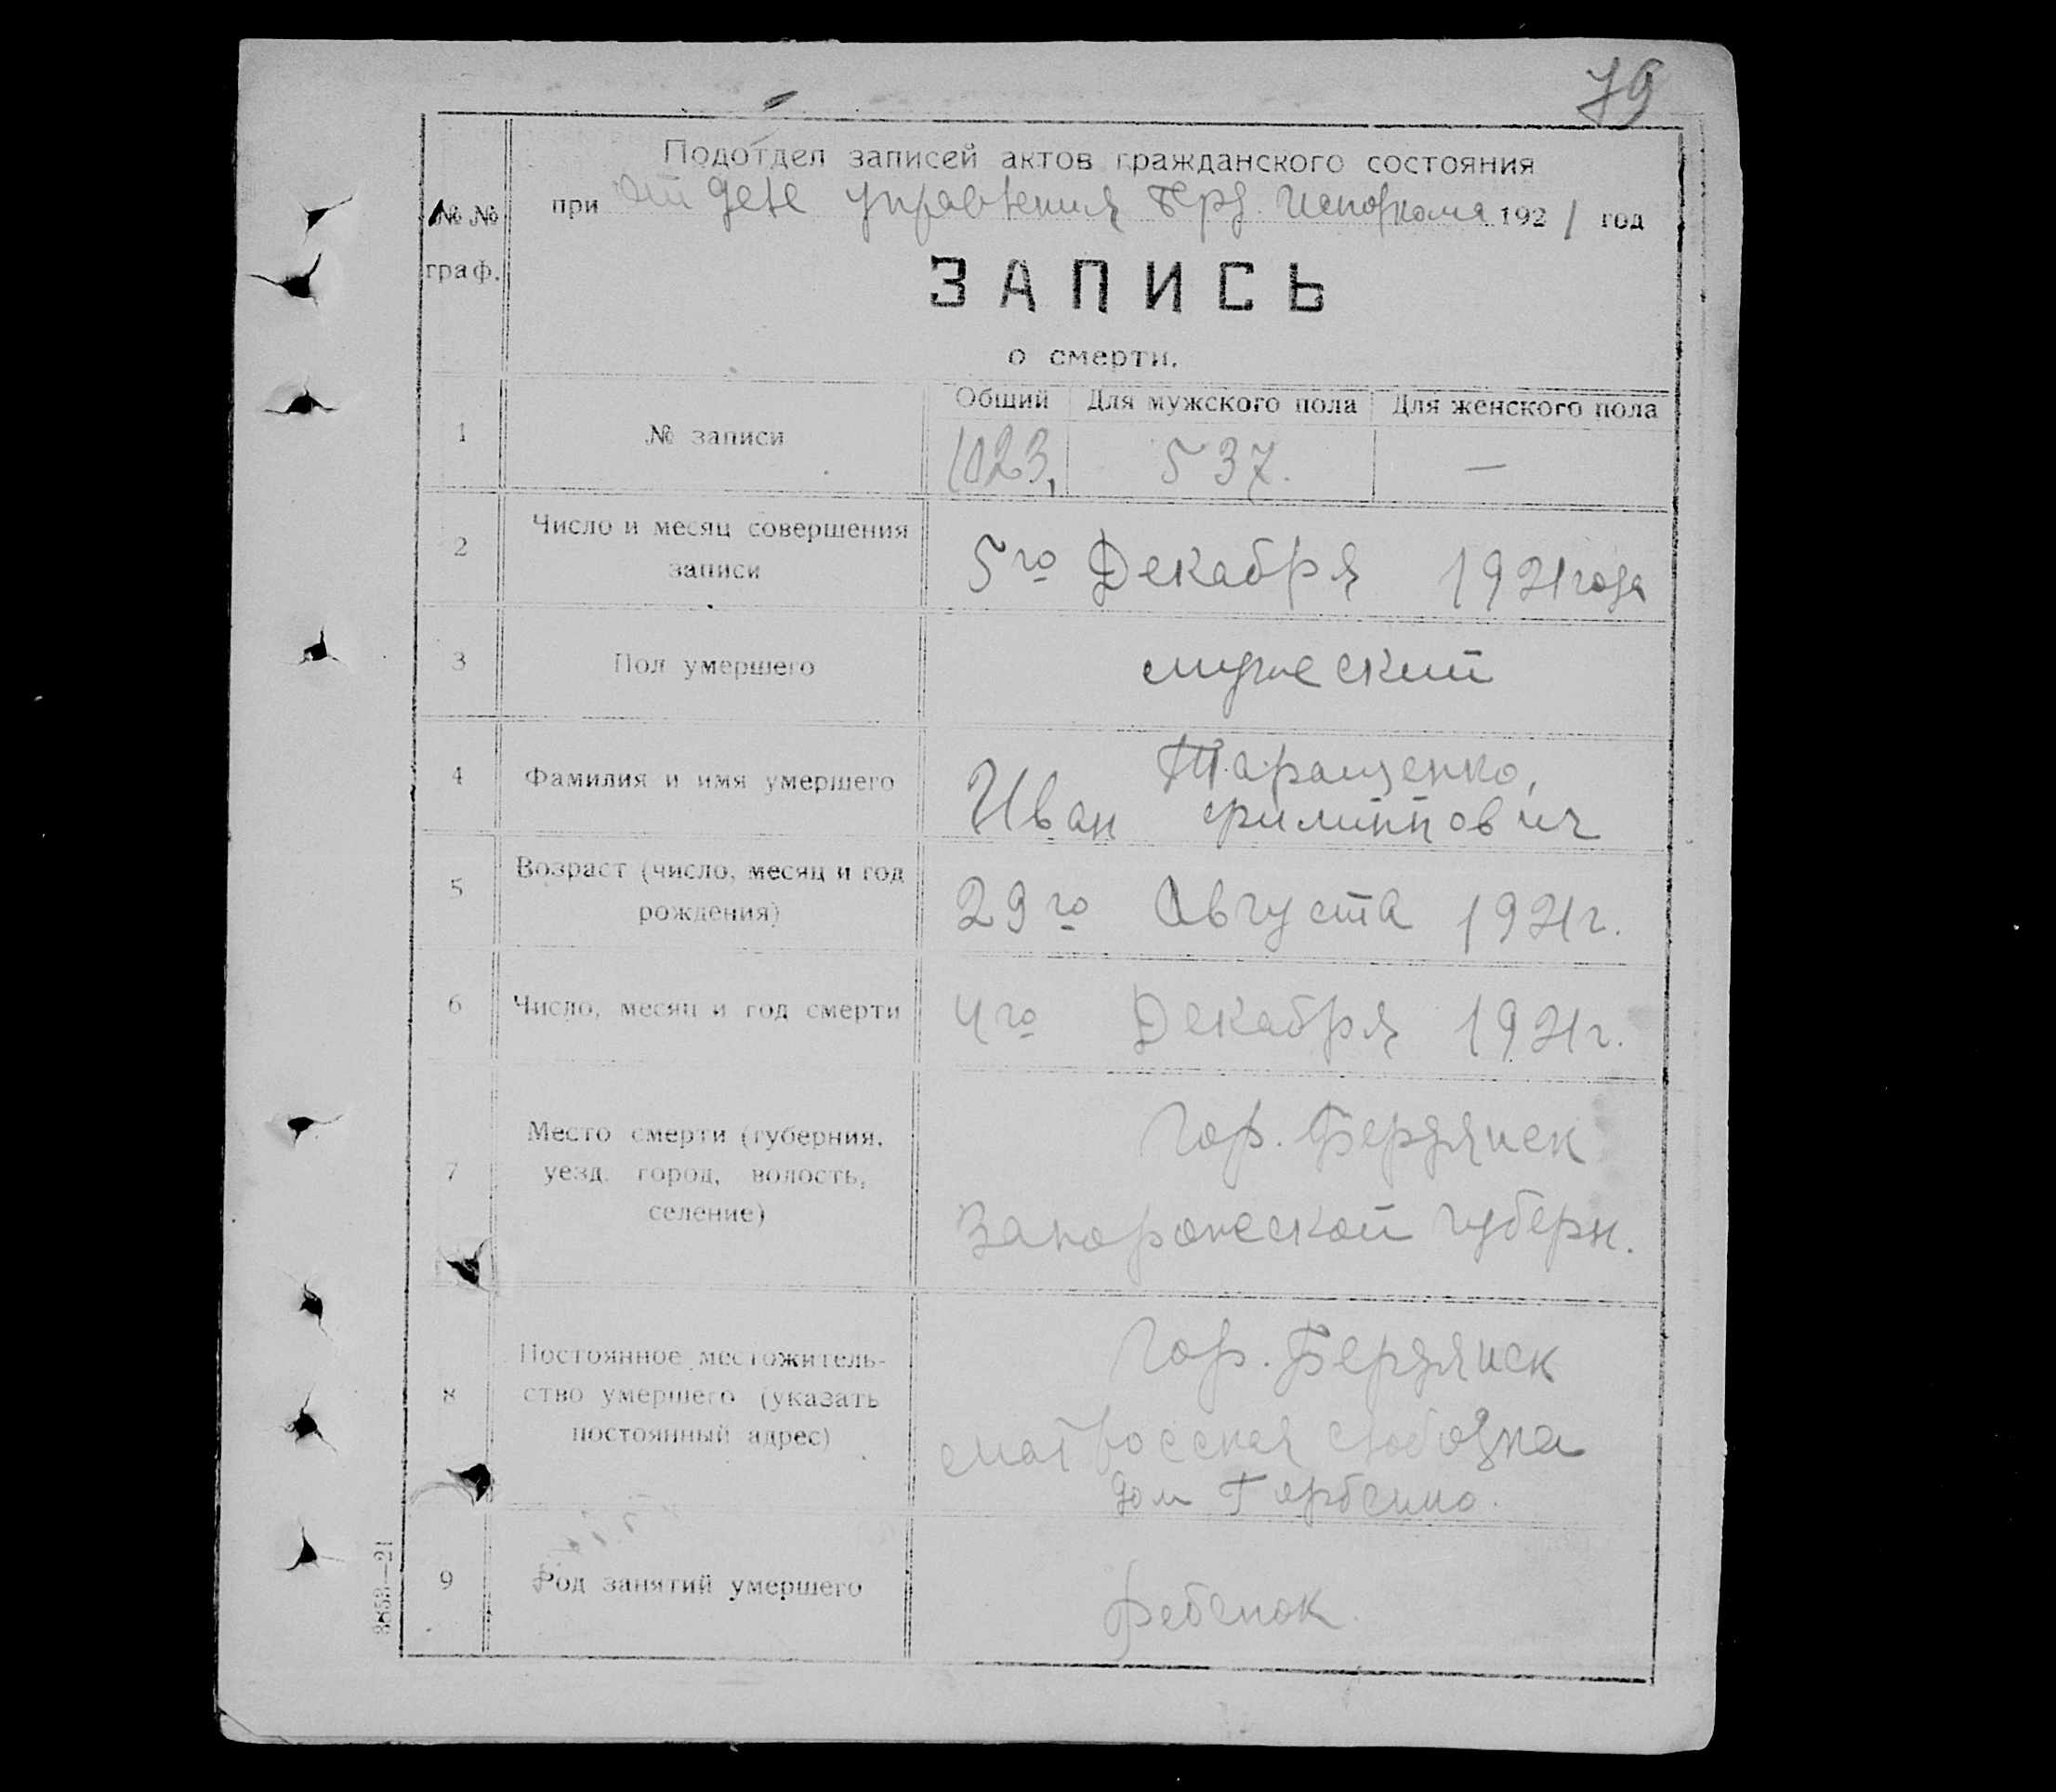 79
Подотдел записей актов гражданского состояния
№№ граф.
при отделе управления Берд. Исполкома 1921 год
ЗАПИСЬ
о смерти.
Общий Для мужского пола Для женского пола
1 № записи 1023, 537. —
2 Число и месяц совершения
записи
5го Декабря 1921 года
3 Пол умершего мужеский
4 Фамилия и имя умершего
Таращенко,
Иван Филиппович
5 Возраст (число, месяц и год
рождения)
29го Августа 1921г.
6 Число, месяц и год смерти 4го Декабря 1921г.
7 Место смерти (губерния,
уезд. город, волость,
селение)
Гор. Бердянск
Запорожеской губерн.
8 Постоянное местожитель-
ство умершего (указать
постоянный адрес)
Гор. Бердянск
матросская слободка
дом
9 Род занятий умершего ребенок.
3853—21